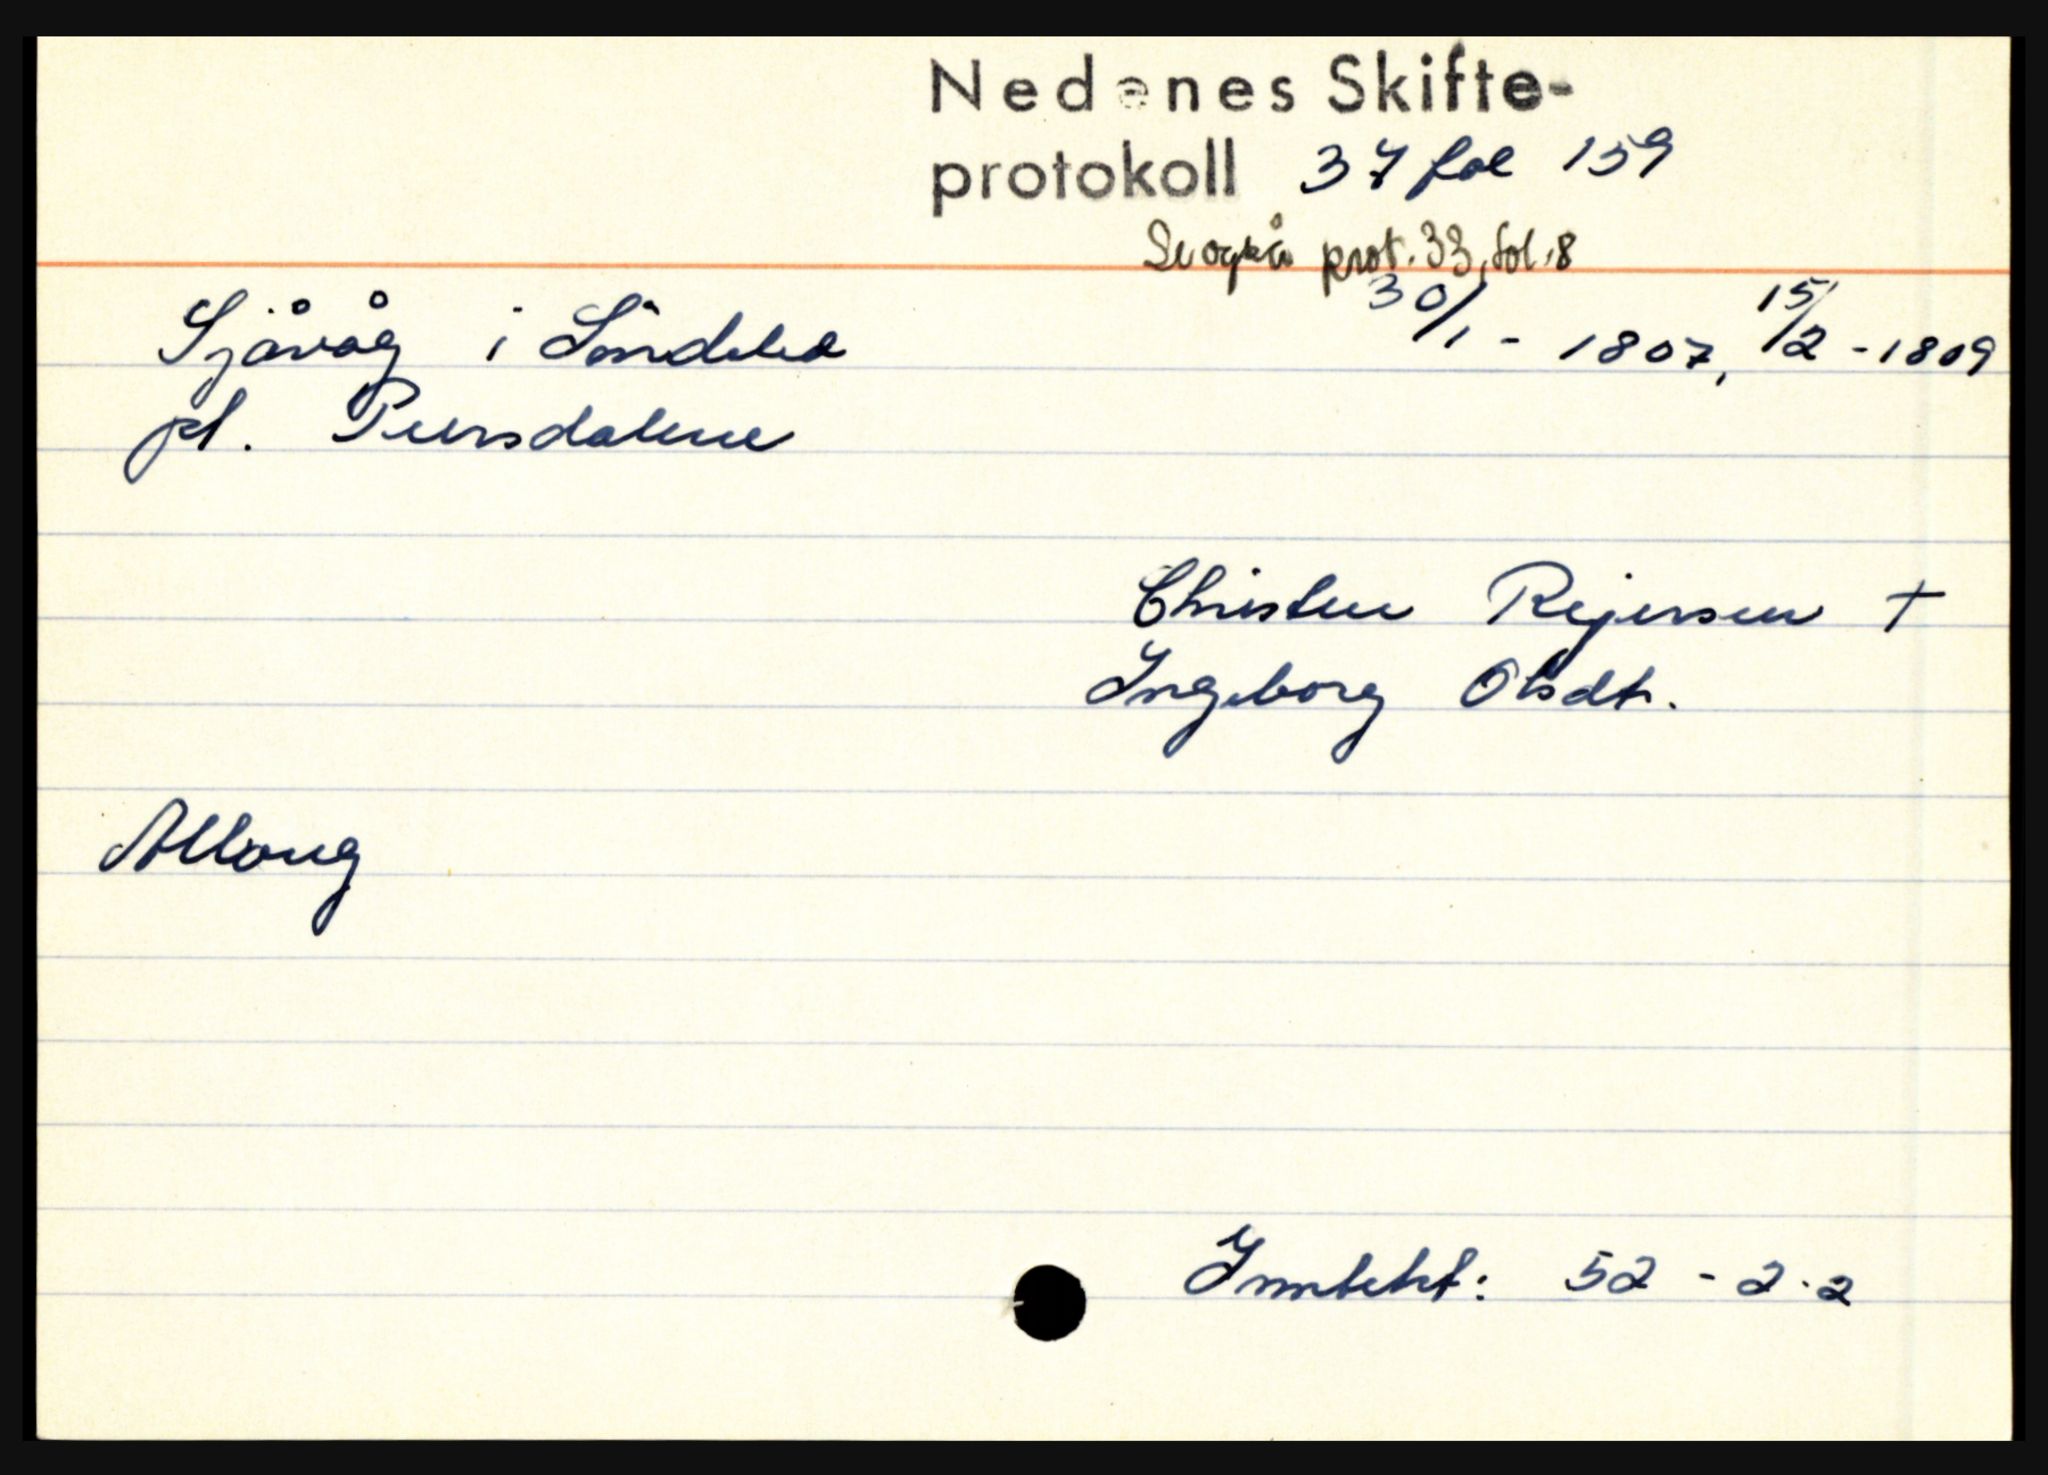 Nedenes Skifte-
protokoll 37 fol 159
Se også prot. 33, fol. 8
Sjåvåg i Söndeled 30/1 - 1807, 15/2 - 1809
pl. Peersdalene
Christen Rejersen †
Ingeborg Olsdt.
Allong
Inntekt: 52 - 2 - 2